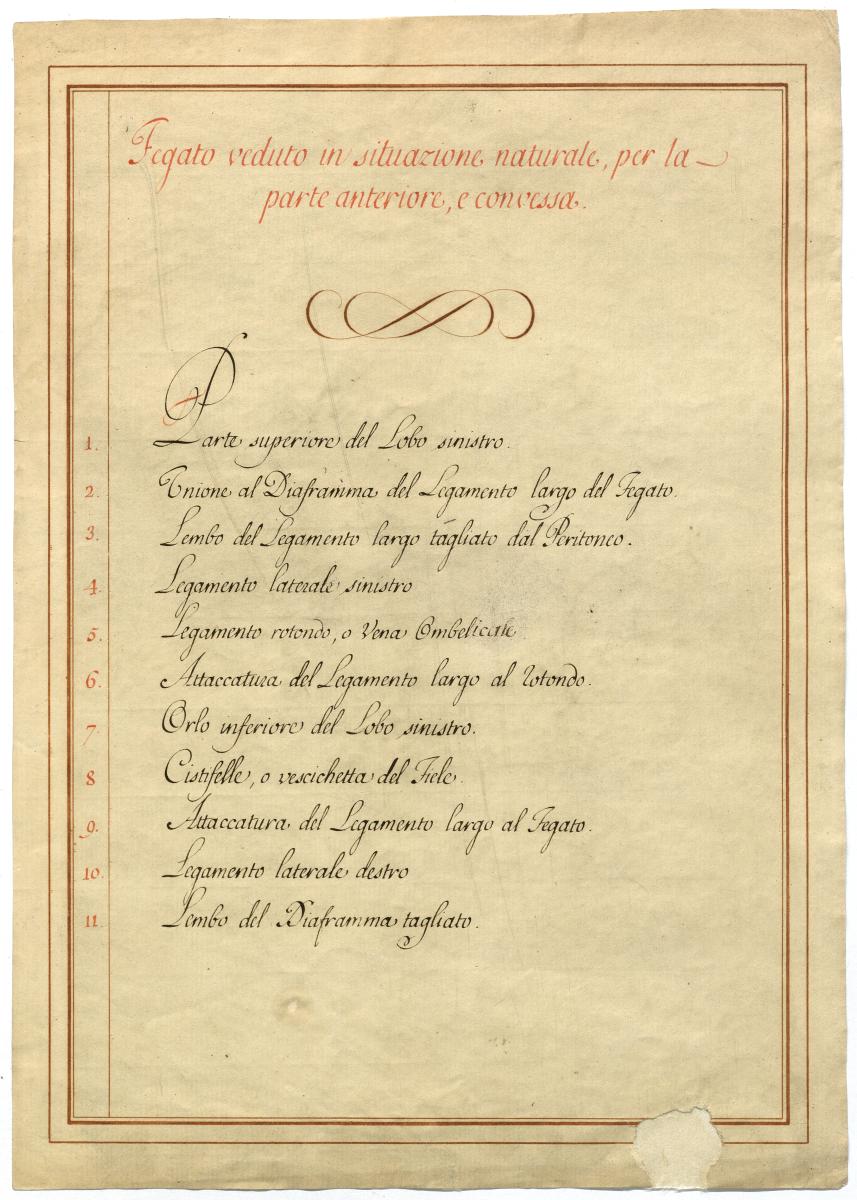 Fegato veduto in situazione naturale, per la
parte anteriore, e convessa.
1. Parte superiore del Lobo sinistro.
2. Unione al Diaframma del Legamento largo del Fegato.
3. Lembo del Legamento largo tagliato dal Peritoneo.
4. Legamento laterale sinistro
5. Legamento rotondo, o Vena Ombelicale
6. Attaccatura del Legamento largo al rotondo.
7. Orlo inferiore del Lobo sinistro.
8 Cistifelle, o vescichetta del Fiele.
9. Attaccatura del Legamento largo al Fegato.
10. Legamento laterale destro
11. Lembo del Diaframma tagliato.